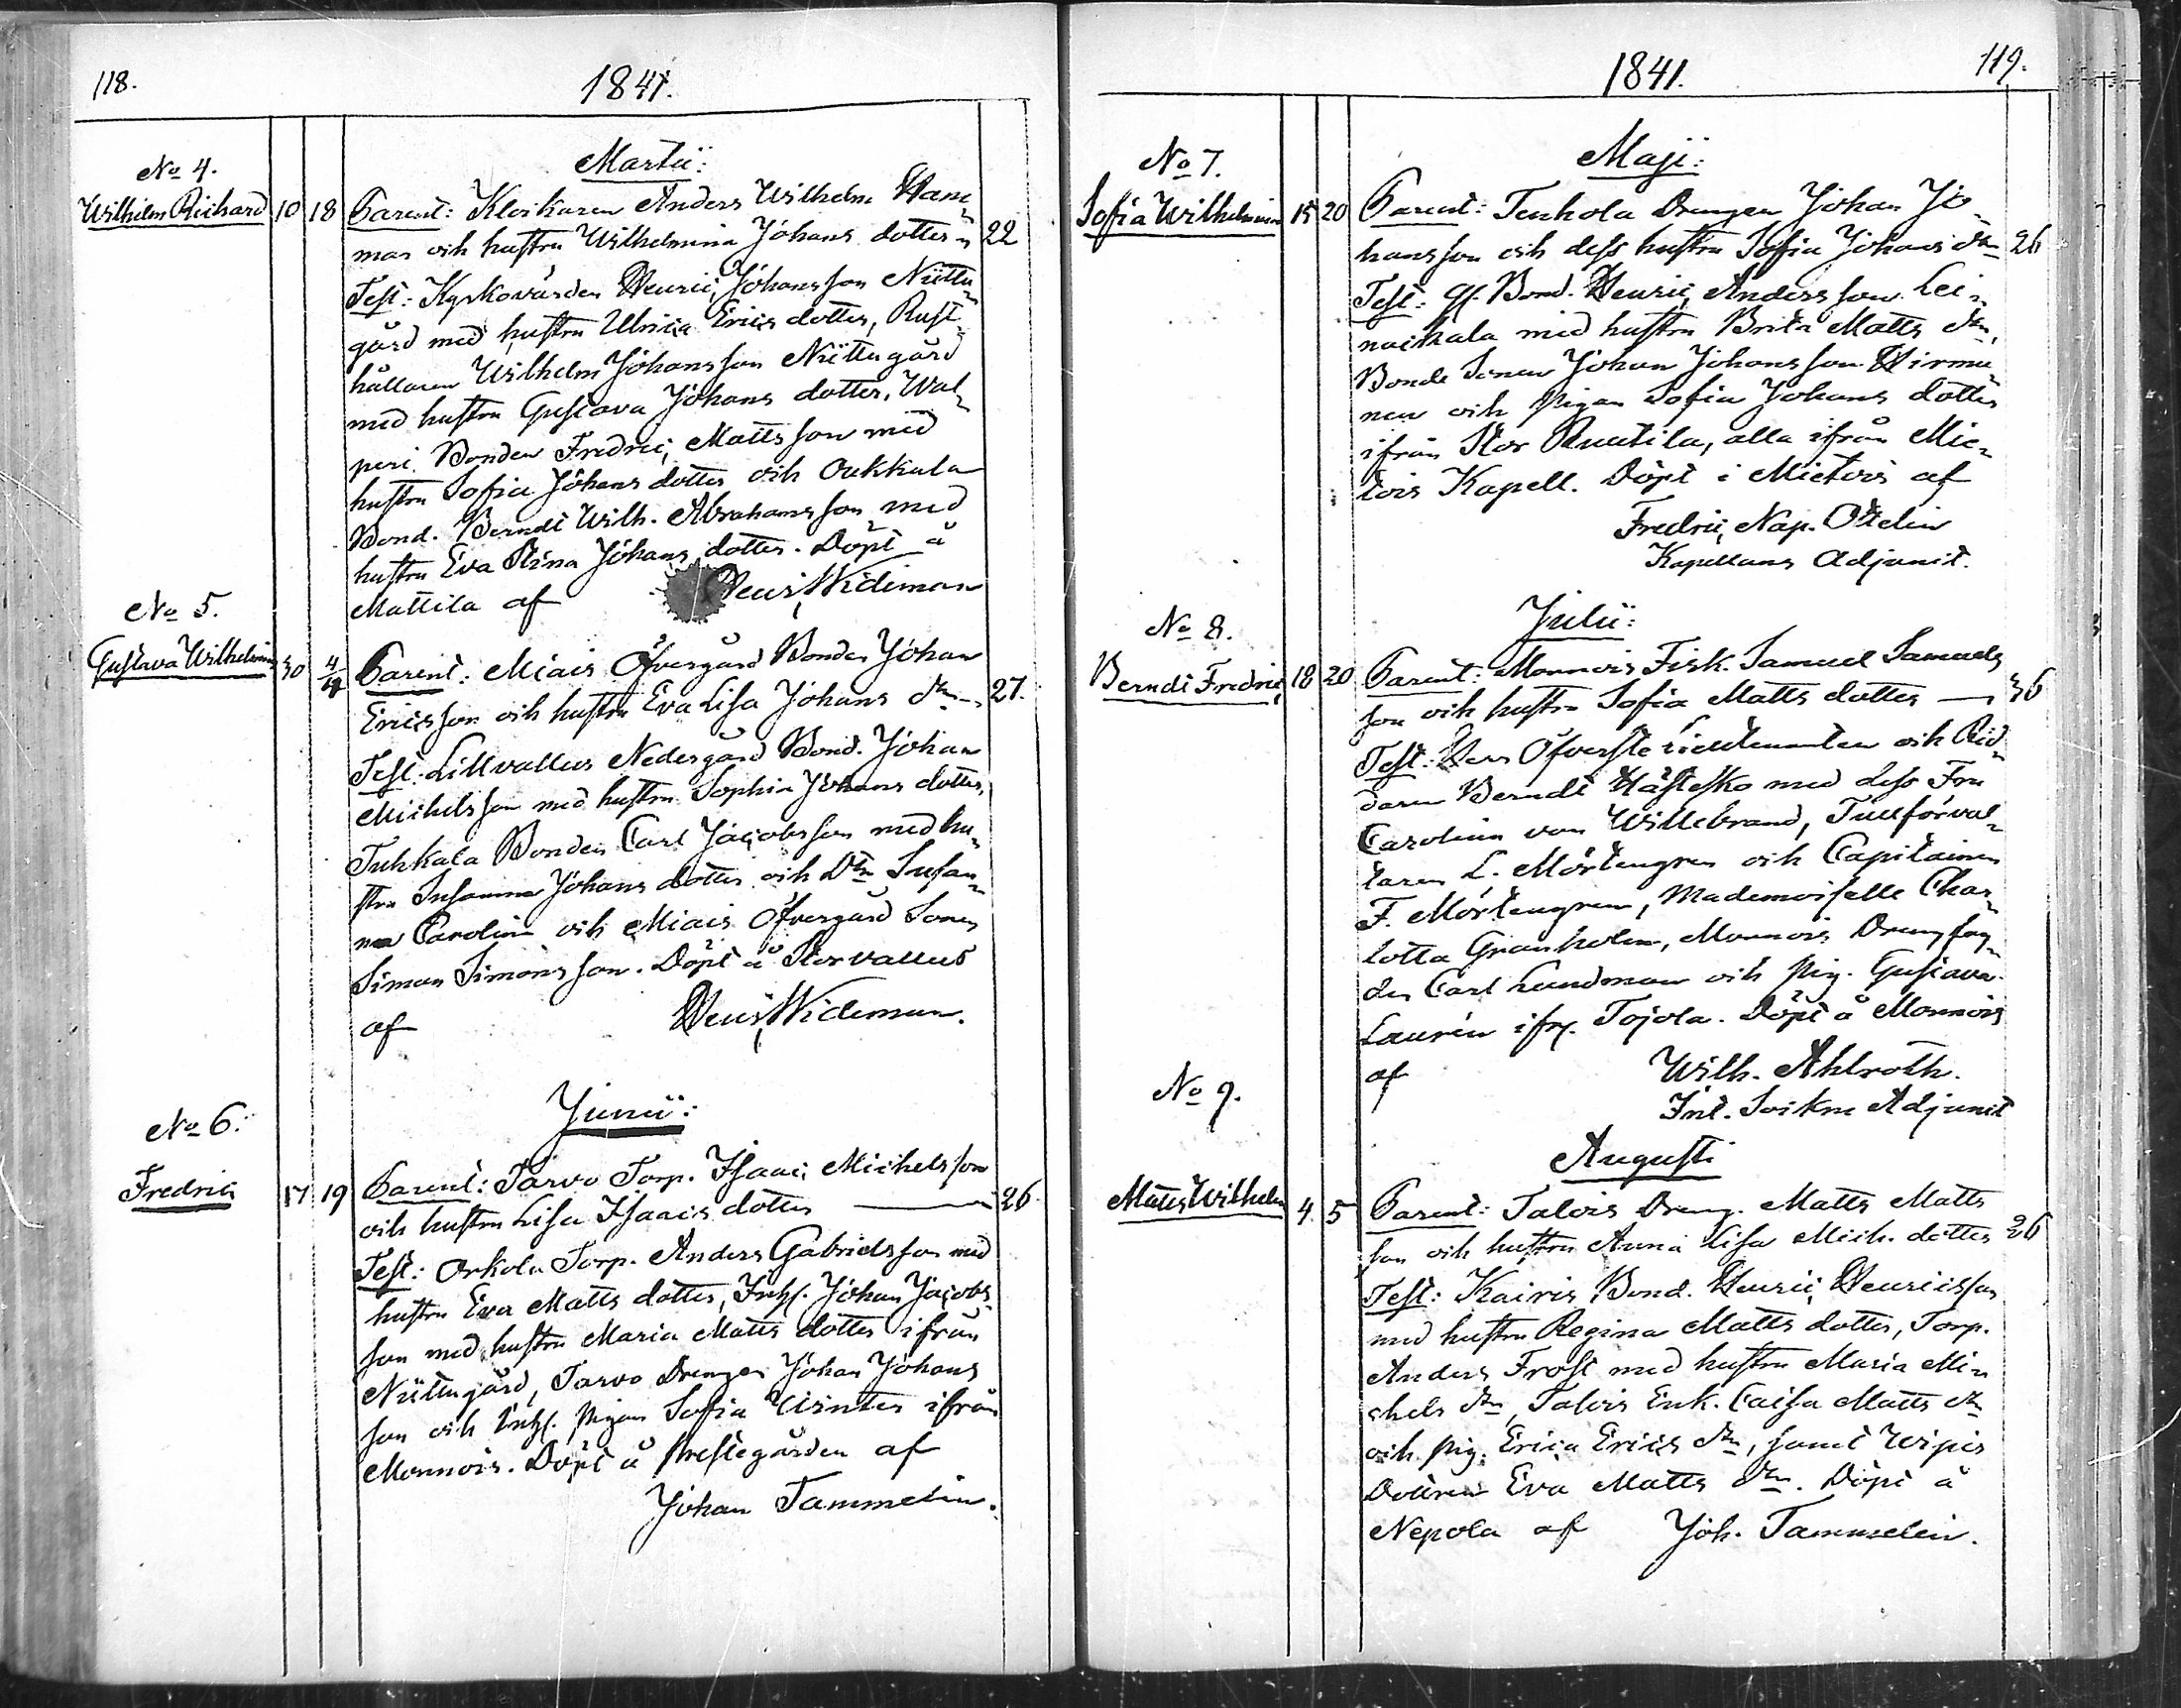 118.
1841.
Martii:
No 4.
Wilhelm Richard 10 18 Parent: Klockaren Anders Wilhelm Ham-
man och hustru Wilhelmina Johans dotter 22
Test: Kyrkovärden Henric Johansson Niittu-
gård med hustru Ulrica Erics dotter, Rust-
hållaren Wilhelm Johansson Niittugård
med hustru Gustava Johans dotter, Wal-
peri Bonden Fredric Mattsson med
hustru Sofia Johans dotter och Oukkala
Bond. Berndt Wilh. Abrahamsson med
hustru Eva Stina Johans dotter. Döpt å
Mattila af Henric Wideman
No 5.
Gustava Wilhelmina 30 4/4 Parent: Miais Öfvergård Bonden Johan
Ericsson och hustru Eva Lisa Johans dtr 27.
Test: Lillvallus Nedergård Bond. Johan
Michelsson med hustru Sophia Johans dotter,
Tuhkala Bonden Carl Jacobsson med hu-
stru Susanna Johans dotter och Dtr Susan-
na Carolina och Miais Öfvergård Sonen
Simon Simonsson. Döpt å Storvallus
af Henric Wideman.
Junii:
No 6.
Fredric 17 19 Parent: Tarvo Torp. Isaac Michelsson
och hustru Lisa Isaacs dotter 26
Test: Orkola Torp. Anders Gabrielsson med
hustru Eva Matts dotter, Inh. Johan Jacobs
son med hustru Maria Matts dotter ifrån
Niittugård, Tarvo Drengen Johan Johans
son och Inh. pigan Sofia Winter ifrån
Monnois. Döpt å Prestegården af
Johan Tammelin.
1841.
119.
Maji:
No 7.
Sofia Wilhelmina 15 20 Parent: Tenhola Drengen Johan Jo-
hansson och dess hustru Sofia Johans dtr 26
Test: Bond. Henric Andersson Lei-
nackala med hustru Brita Matts dtr,
Bonde Sonen Johan Johansson Hirmu-
nen och Pigan Sofia Johans dotter
ifrån Stor Ruutila, alla ifrån Mie-
tois Kapell. Döpt i Mietois af
Fredric Nap. Odelin
Kapellans Adjunct.
Julii:
No 8.
Berndt Fredric 18 20 Parent: Monnois Fisk. Samuel Samuels
son och hustru Sofia Matts dotter 36
Test: Herr Öfverste Lieutenanten och Rid-
daren Berndt Hästesko med dess Fru
Carolina von Willebrand, Tullförval-
taren L. Mörtengren och Capitainen
F. Mörtengren, Mademoiselle Char-
lotta Granholm, Monnois Drengfog-
den Carl Lundman och Pig. Gustava
Laurén ifr. Tojola. Döpt å Monnois
af Wilh. Ahlroth.
Int. Sockne Adjunct
Augusti
No 9.
Matts Wilhelm 4 5 Parent: Talois Dreng. Matts Matts
son och hustru Anna Lisa Mich. dotter 26
Test: Kairis Bond. Henric Henricsson
med hustru Regina Matts dotter, Torp.
Anders Frost med hustru Maria Mi-
chels dtr, Talois Enk. Caisa Matts dtr
och Pig. Erica Erics dtr, samt Wipis
Dottren Eva Matts dtr. Döpt å
Nepola af Joh. Tammelin.